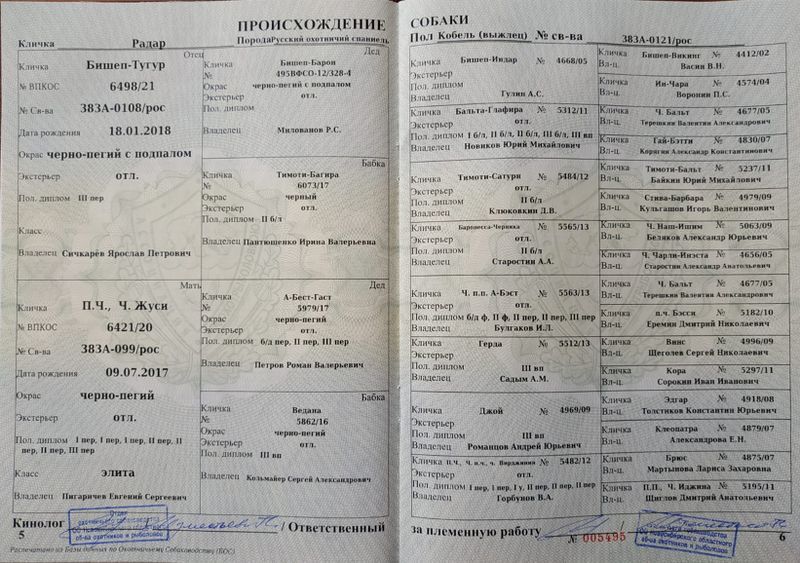 ПРОИСХОЖДЕНИЕ
Кличка Радар ПородаРусский охотничий спаниель
Отец
Кличка Бишеп-Тугур
№ ВПКОС 6498/21
№ Св-ва 383А-0108/рос
Дата рождения 18.01.2018
Окрас черно-пегий с подпалом
Экстерьер отл.
Пол. диплом III пер
Класс
Владелец Сичкарёв Ярослав Петрович
Дед
Кличка Бишеп-Барон
№ 495ВФСО-12/328-4
Окрас черно-пегий с подпалом
Экстерьер отл.
Пол. диплом
Владелец Милованов Р.С.
Бабка
Кличка Тимоти-Багира
№ 6073/17
Окрас черный
Экстерьер отл.
Пол. диплом II б/л
Владелец Пантюшенко Ирина Валерьевна
Мать
Кличка П.Ч., Ч. Жуси
№ ВПКОС 6421/20
№ Св-ва 383А-099/рос
Дата рождения 09.07.2017
Окрас черно-пегий
Экстерьер отл.
Пол. диплом I пер, I пер, I пер, II пер, II
пер, II пер, III пер
Класс элита
Владелец Пигаричев Евгений Сергеевич
Дед
Кличка А-Бест-Гаст
№ 5979/17
Окрас черно-пегий
Экстерьер отл.
Пол. диплом б/д пер, II пер, III пер
Владелец Петров Роман Валерьевич
Бабка
Кличка Ведана
№ 5862/16
Окрас черно-пегий
Экстерьер отл.
Пол. диплом III вп
Владелец Кольмайер Сергей Александрович
Кинолог / Ответственный
5
Распечатано из Базы данных по Охотничьему Собаководству (БОС)
СОБАКИ
Пол Кобель (выжлец) № св-ва 383А-0121/рос
Кличка Бишеп-Индар № 4668/05
Экстерьер
Пол. диплом
Владелец Гулин А.С.
Кличка Бальта-Глафира № 5312/11
Экстерьер отл.
Пол. диплом I б/л, II б/л, II б/л, III б/л, III вп
Владелец Новиков Юрий Михайлович
Кличка Тимоти-Сатурн № 5484/12
Экстерьер отл.
Пол. диплом II б/л
Владелец Клюковкин Д.В.
Кличка Баронесса-Черника № 5565/13
Экстерьер отл.
Пол. диплом II б/л
Владелец Старостин А.А.
Кличка Ч. п.п. А-Бэст № 5563/13
Экстерьер отл.
Пол. диплом б/д ф, II ф, II пер, II пер, III пер
Владелец Булгаков И.Л.
Кличка Герда № 5512/13
Экстерьер
Пол. диплом III вп
Владелец Садым А.М.
Кличка Джой № 4969/09
Экстерьер
Пол. диплом III вп
Владелец Романцов Андрей Юрьевич
Кличка П.Ч., Ч. п.п., ч. Вирджиния № 5482/12
Экстерьер отл.
Пол. диплом I пер, I пер, I у, II пер, II пер, II пер
Владелец Горбунов В.А.
Кличка Бишеп-Викинг № 4412/02
Вл-ц. Васин В.Н.
Кличка Ин-Чара № 4574/04
Вл-ц. Воронин П.С.
Кличка Ч. Бальт № 4677/05
Вл-ц. Терешкин Валентин Александрович
Кличка Гай-Бэтти № 4830/07
Вл-ц. Корягин Александр Константинович
Кличка Тимоти-Бальт № 5237/11
Вл-ц. Байкин Юрий Михайлович
Кличка Стива-Барбара № 4979/09
Вл-ц. Кульгашов Игорь Валентинович
Кличка Ч. Наш-Ишим № 5063/09
Вл-ц. Беляков Александр Юрьевич
Кличка Ч. Чарли-Инэста № 4656/05
Вл-ц. Старостин Александр Анатольевич
Кличка Ч. Бальт № 4677/05
Вл-ц. Терешкин Валентин Александрович
Кличка п.ч. Бэсси № 5182/10
Вл-ц. Еремин Дмитрий Николаевич
Кличка Винс № 4996/09
Вл-ц. Щеголев Сергей Николаевич
Кличка Кора № 5297/11
Вл-ц. Сорокин Иван Иванович
Кличка Эдгар № 4918/08
Вл-ц. Толстиков Константин Юрьевич
Кличка Клеопатра № 4879/07
Вл-ц. Александрова Е.Н.
Кличка Брюс № 4875/07
Вл-ц. Мартынова Лариса Захаровна
Кличка П.П., Ч. Иджина № 5195/11
Вл-ц. Щиглов Дмитрий Анатольевич
за племенную работу
№ 005495
6